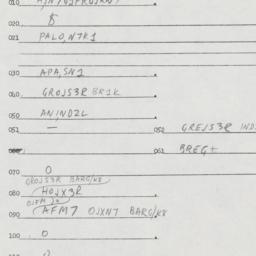 010
020
021 PALO,N7K1
030 APA,SN1
040 GROJS3R BR1K
050 AN,IND2L
051 — 052 GREJS3R IND
060 061 BREG+
070 O
GROJS3R BARG/K8
080 HOJX3R
090 AFM7 OJXN7 BARG/K8
100 O